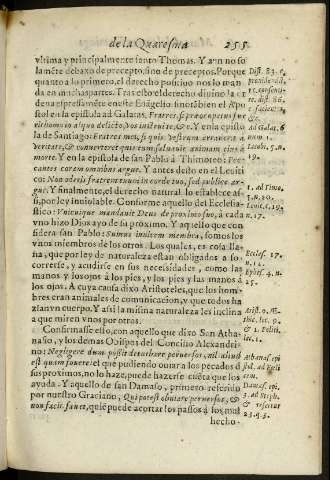 de la Quaresma 255
vltima y principalmente santo Thomas. Y aun no so
la mẽte debaxo de precepto, sino de preceptos. Porque
quanto a lo primero el derecho positiuo nos lo wan
da en muchas partes. Tras esto el derecho diuino la or
dena expressamẽte en este Euãgelio, sino tãbien el Apo
stol en la epistola ad Galatas. Fratres, si præoccupatus fue
rit homo in aliquo delicto, vos instruite, &c. Y en la episto
la de Santiago: Fratres mei, si quis vestrum errauerit a
veritate, & conuerterit quis eum saluauit animam eius a
morte. Y en la epistola de san Pablo à Thimoteo: Pec-
cantes coram omnibus argue. Y antes desto en el Leuiti
co: Non oderis fratrem tuum in corde tuo, sed publice ar-
gue. Y finalmente, el derecho natural lo establece as
si, por ley inuiolable. Conforme aquello del Ecclesia-
stico: Vnicuique mandauit Deus de proximo suo, à cada
vno hizo Dios ayo de su proximo. Y aquello que con
sidera san Pablo: Sumus inuicem membra, somos los
vnos miembros de los otros. Los quales, es cosa lla-
na, que por ley de naturaleza estan obligados a so-
correrse, y acudirse en sus necesidades, como las
manos y los ojos à los pies, y los pies y las manos à
los ojos. A cuya causa dixo Aristoteles, que los hom-
bres eran animales de comunicacion, y que todos ha
zian vn cuerpo. Y assi la misma naturaleza les inclina
a que miren vnos por otros.
Confirmasse esto, con aquello que dixo San Atha-
nasio, y los demas Obispos del Concilio Alexandri-
no: Negligere quum possis deturbare peruersos, nil aliud
est quam fouere. el que pudiendo ouiar a los pecados d̃
sus proximos, no lo haze, puede hazerse cuẽta que los
ayuda. Y aquello de san Damaso, primero referido
por nuestro Graciano, Qui potest obuiare peruersos, &
non facit, fauet, quiẽ puede acortar los passos à los mal
hecho-
Dist. 83. c.
ad Galat. 6
num. 1.
Iacobi. 5. n.
19.
1. ad Timo.
5. n. 20.
Leuit. c. 19.
n. 17.
Eccles. 17.
n. 12.
Ephes. 4. n.
25.
Arist. 0. Æ-
thic. lec. 9.
& 1. Politi.
lec. 1.
Damas. epi
3. ad Steph.
& refertur
23. q. 3.